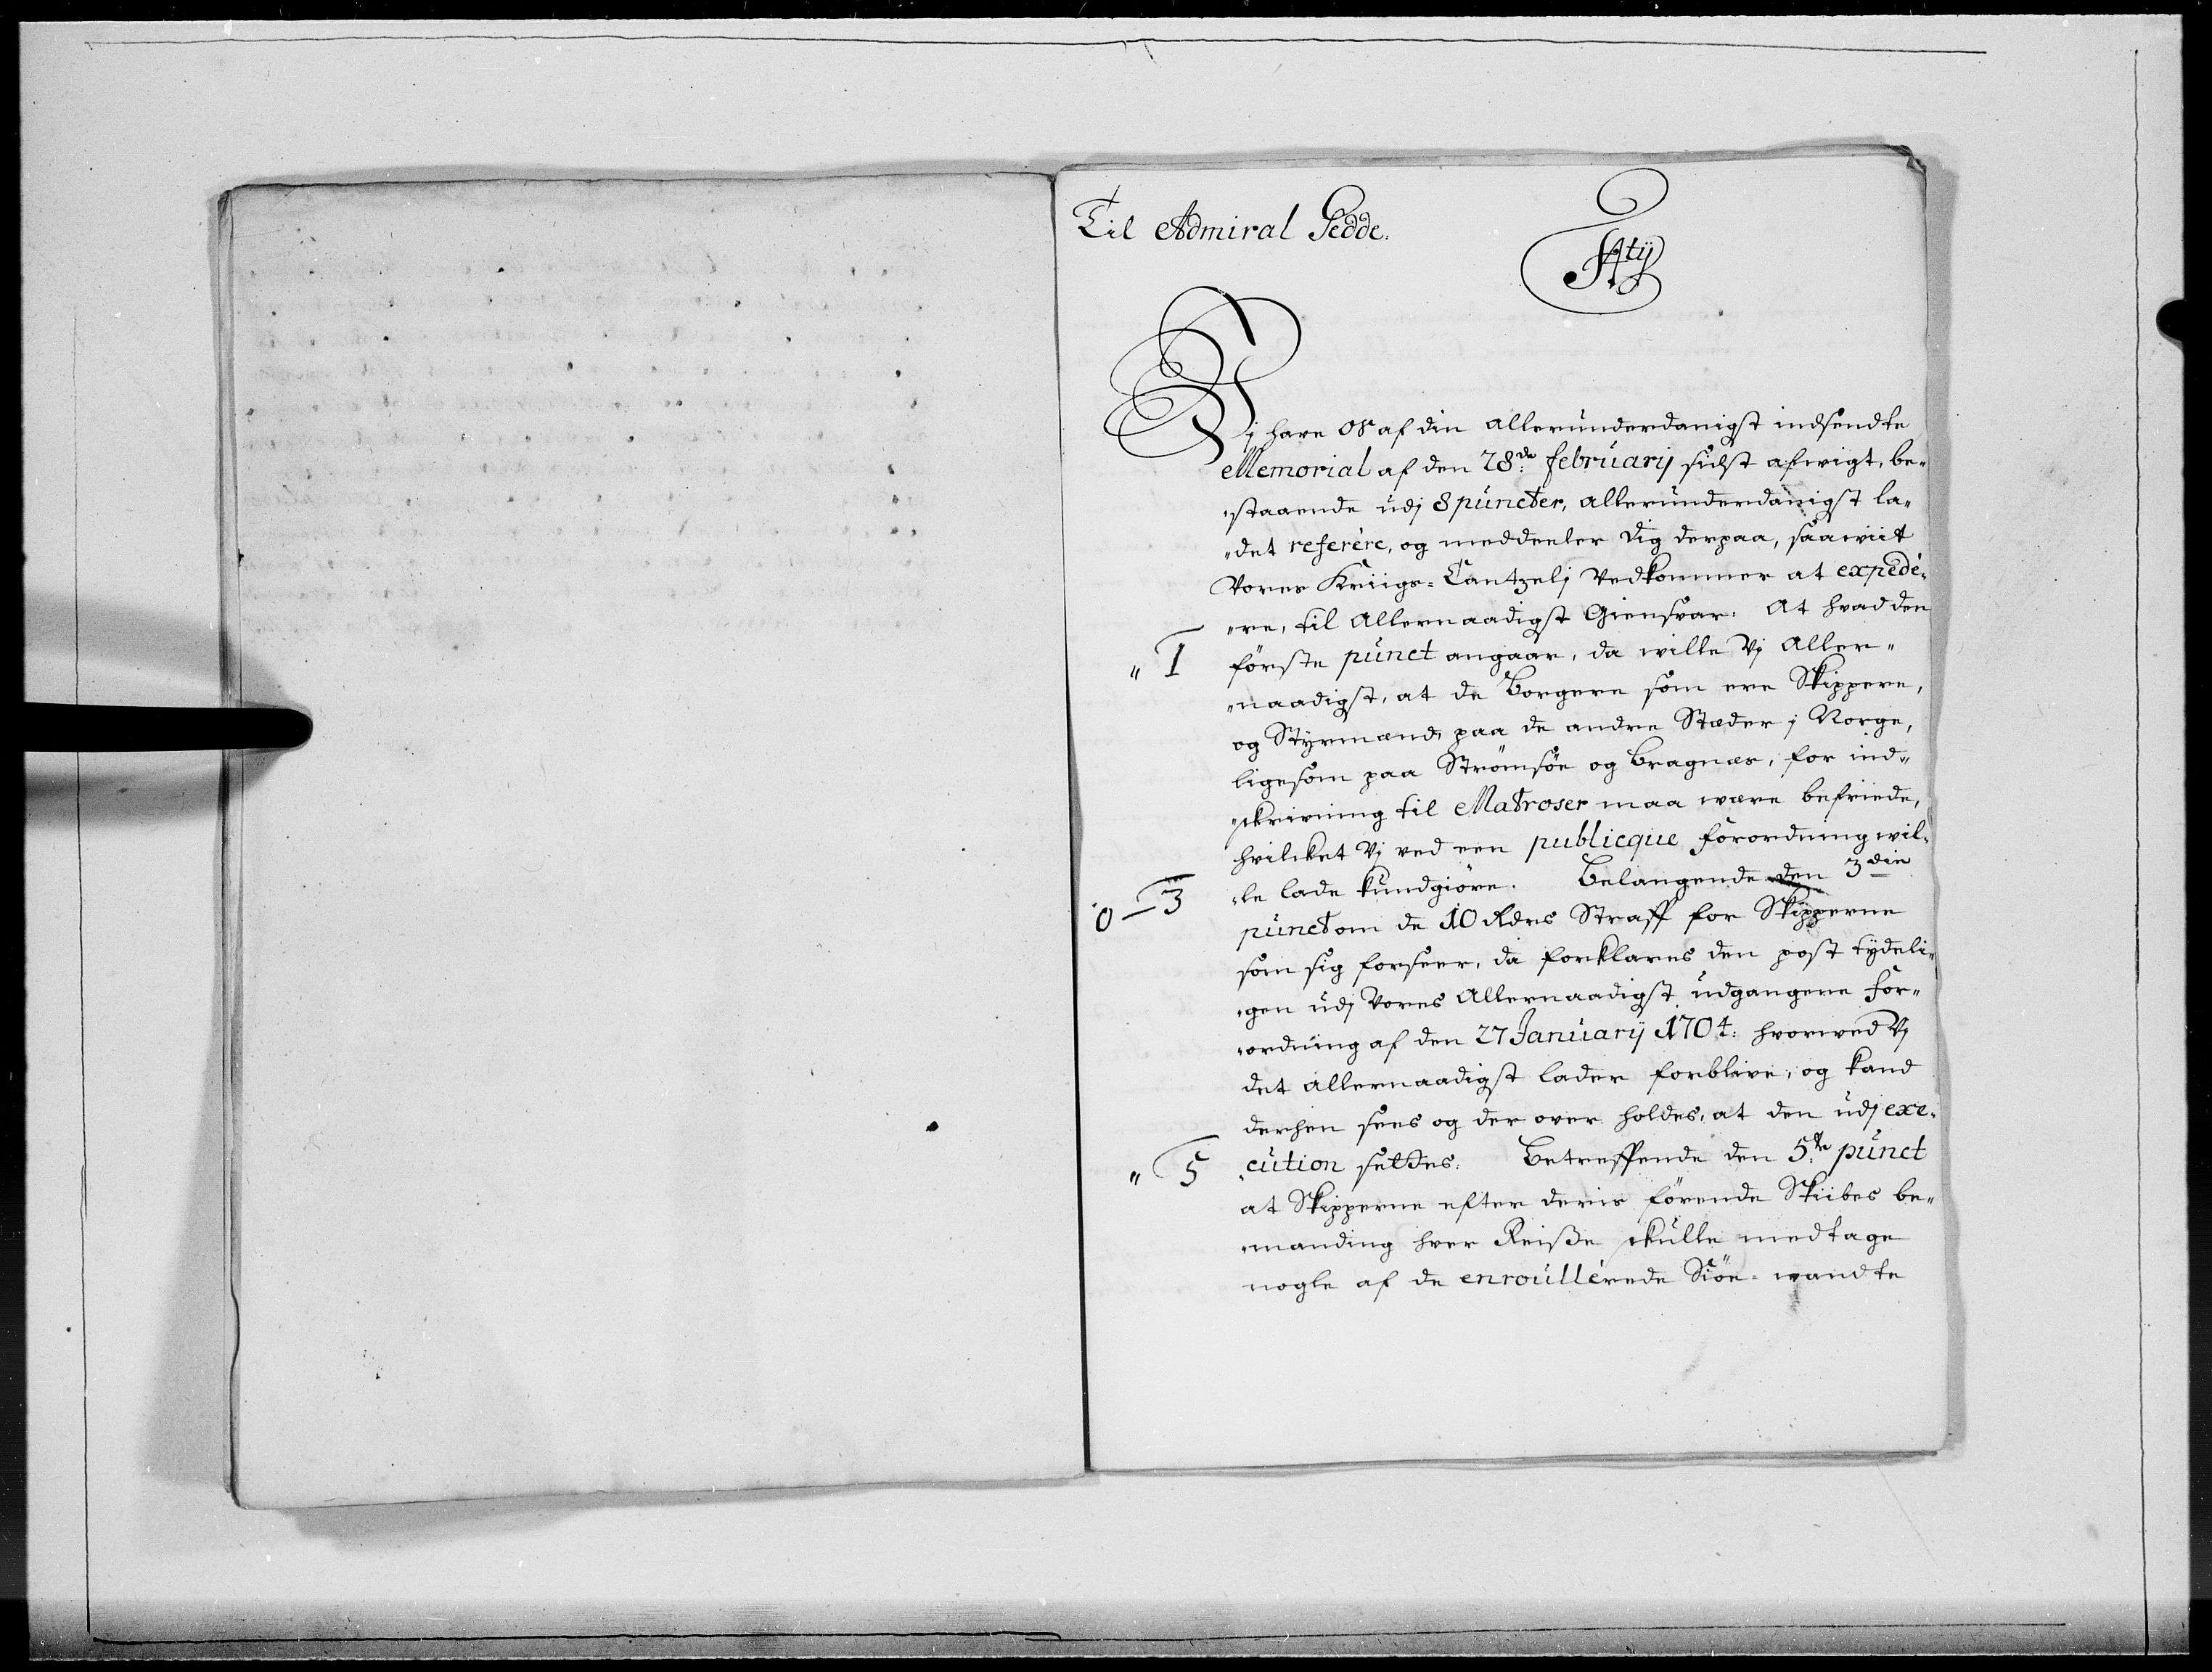 Til Admiral Gedde.
Vj have Os af din allerunderdanigst indsendte
Memorial af den 28de. februarij sidst afwigt, be„
„staaende udj 8 puncter, allerunderdanigst la„
„det referère, og meddeeler dig derpaa, saawiit
Vores Kriigs-Cantzelj Vedkommer at expedè„
„re, til Allernaadigst Giensvar: At hvad den
„ 1
første punct angaar, da wille Vj Aller„
„naadigst, at de Borgere som ere Skippere,
og Styrmænd, paa de andre Stæder j Norge,
ligesom paa Strømsøe og Bragnæs, for ind„
„skrivning til Matroser maa være befriede,
hvilcket Vj ved een publicque forordning wil„
„le lade kundgiøre. Belangende den 3die
0 — 3
punct om de 10 Rdrs Straff for Skipperne
som sig forseer, da forklares den post tydeli„
„gen udj Vores Allernaadigst udgangene for„
„ordning af den 27 Januarij 1704: hvorved Vj
det allernaadigst lader forblive, og kand
derhen sees og der over holdes, at den udj exe„
„cution settes. Betreffende den 5te. punct
„ 5
at Skipperne efter deris førende Skibes be„
„manding hver Reise skulle medtage
nogle af de enroullèrede Siöe-wandte